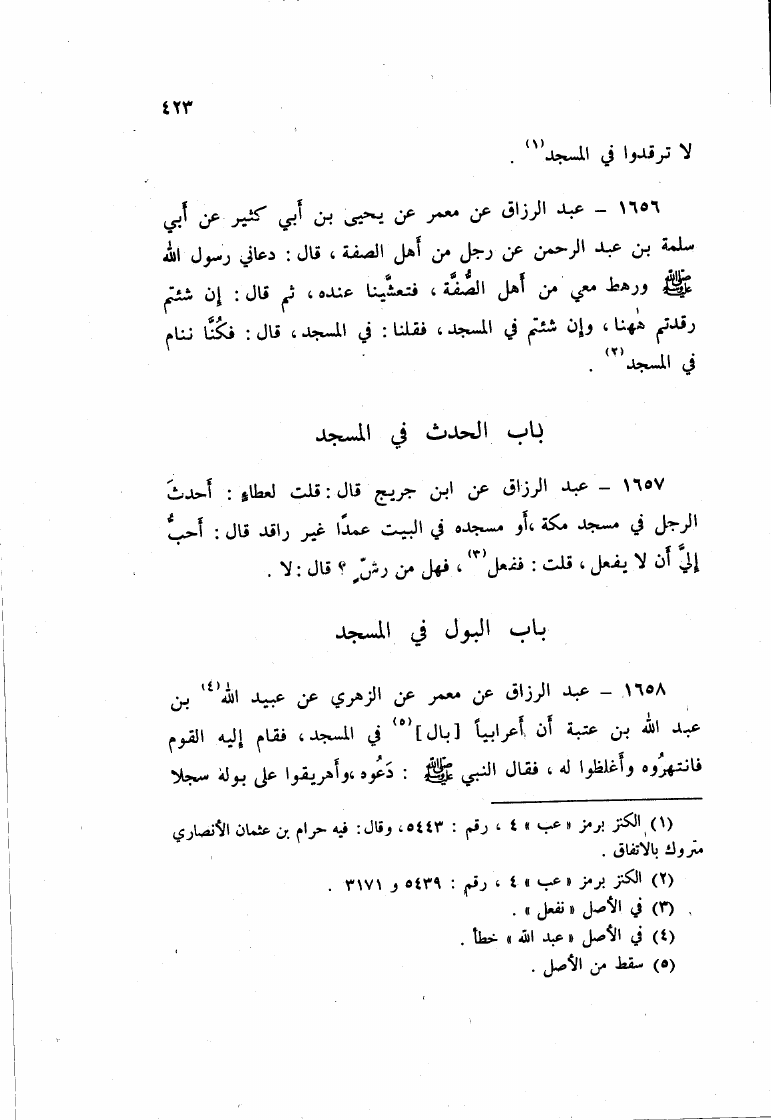 ٤٢٣
لا ترقدوا في المسجد(١) .
١٦٥٦ – عبد الرزاق عن معمر عن يحيى بن أبي كثير عن أبي
سلمة بن عبد الرحمن عن رجل من أهل الصفة ، قال : دعاني رسول الله
ﷺ ورهط معي من أهل الصُّفَّة ، فتعشَّينا عنده ، ثم قال : إن شئتم
رقدتم هٰهنا ، وإن شئتم في المسجد ، فقلنا : في المسجد ، قال : فكُنَّا ننام
في المسجد(٢) .
باب الحدث في المسجد
١٦٥٧ – عبد الرزاق عن ابن جريج قال : قلت لعطاءٍ : أحدثَ
الرجل في مسجد مكة ، أو مسجده في البيت عمدًا غير راقد قال : أحبُّ
إليَّ أن لا يفعل ، قلت : ففعل(٣) ، فهل من رشّ ؟ قال : لا .
باب البول في المسجد
١٦٥٨ – عبد الرزاق عن معمر عن الزهري عن عبيد الله(٤) بن
عبد الله بن عتبة أن أعرابياً [بال](٥) في المسجد ، فقام إليه القوم
فانتهرُوه وأغلظوا له ، فقال النبي ﷺ : دَعُوه ، وأهريقوا على بوله سجلا
(١) الكنز برمز « عب » ٤ ، رقم : ٥٤٤٣ ، وقال : فيه حرام بن عثمان الأنصاري
متروك بالاتفاق .
(٢) الكنز برمز « عب » ٤ ، رقم : ٥٤٣٩ و ٣١٧١ .
(٣) في الأصل « نفعل » .
(٤) في الأصل « عبد الله » خطأ .
(٥) سقط من الأصل .